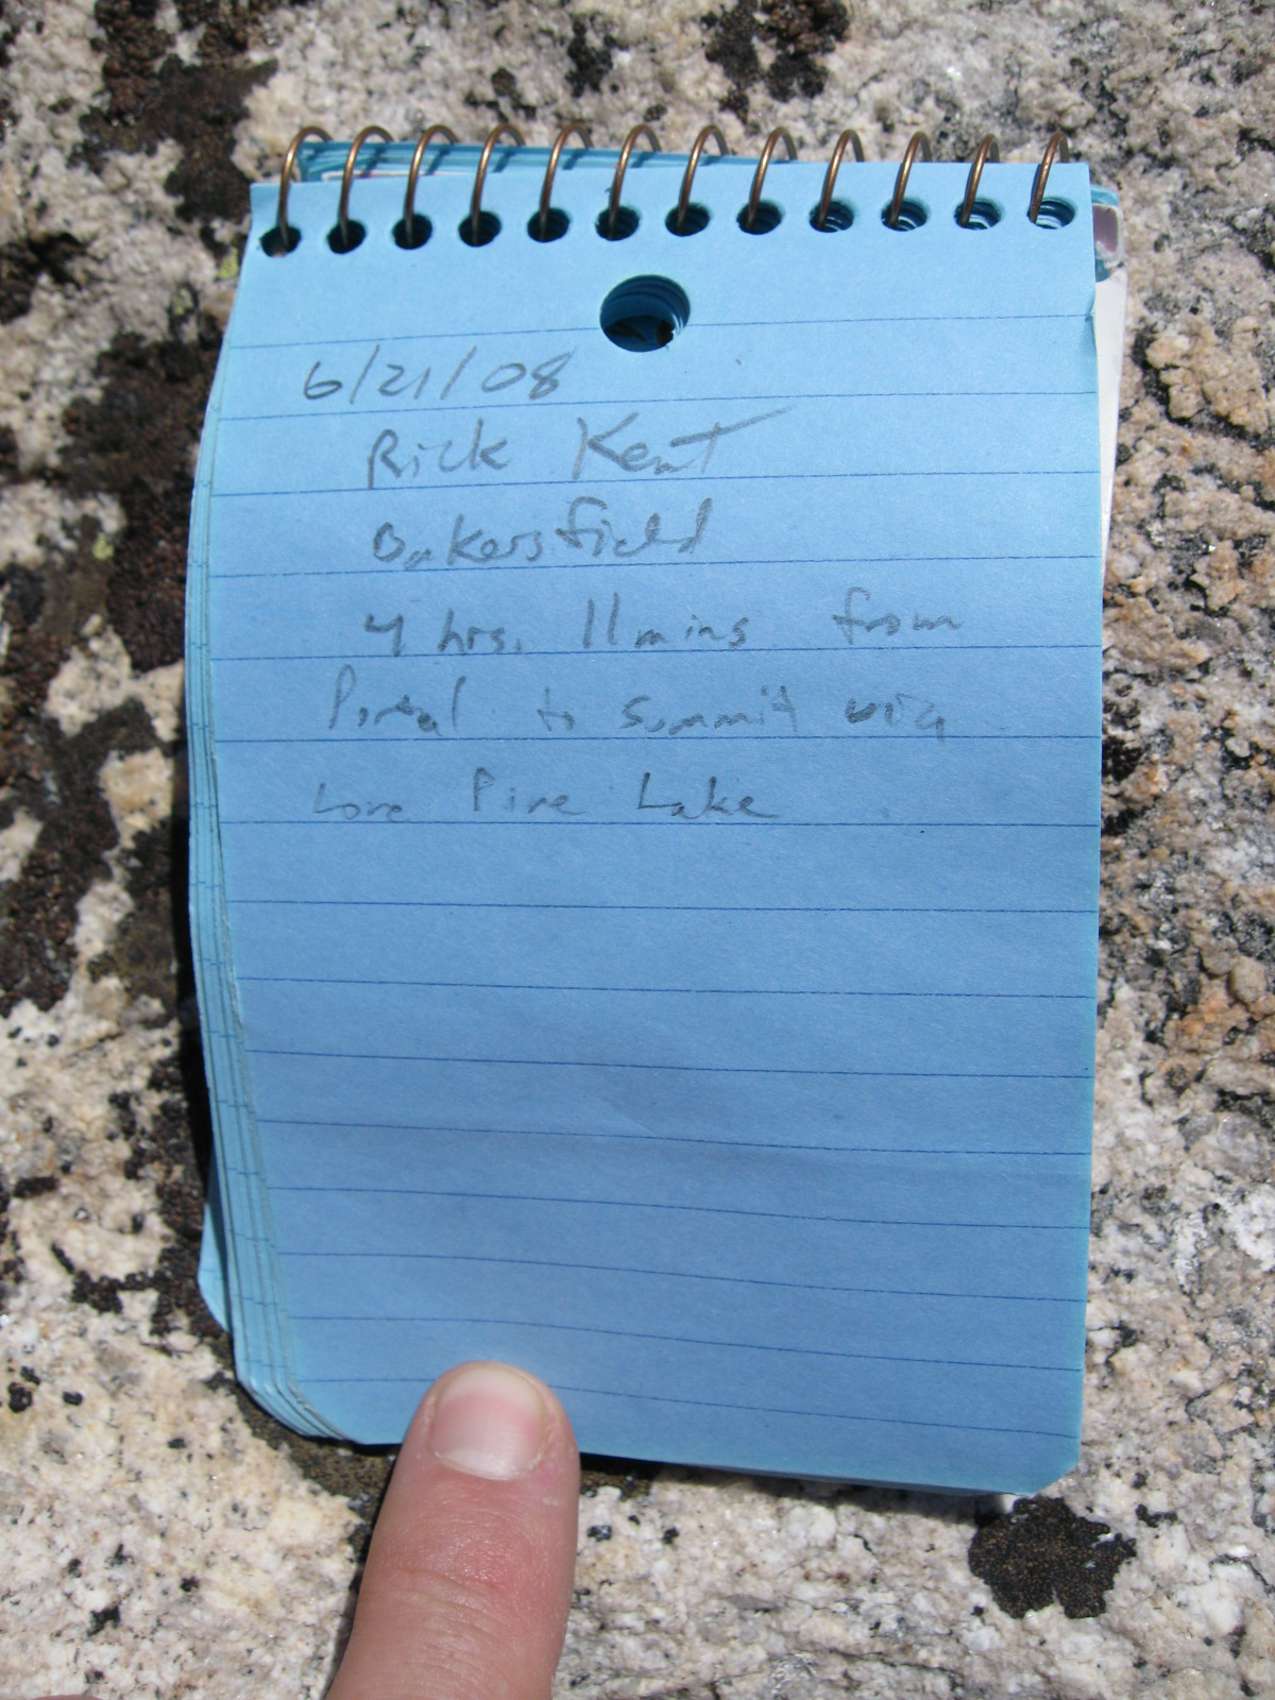 6/21/08
Rick Kent
Bakersfield
4 hrs, 11 mins from
Portal to summit via
Lone Pine Lake